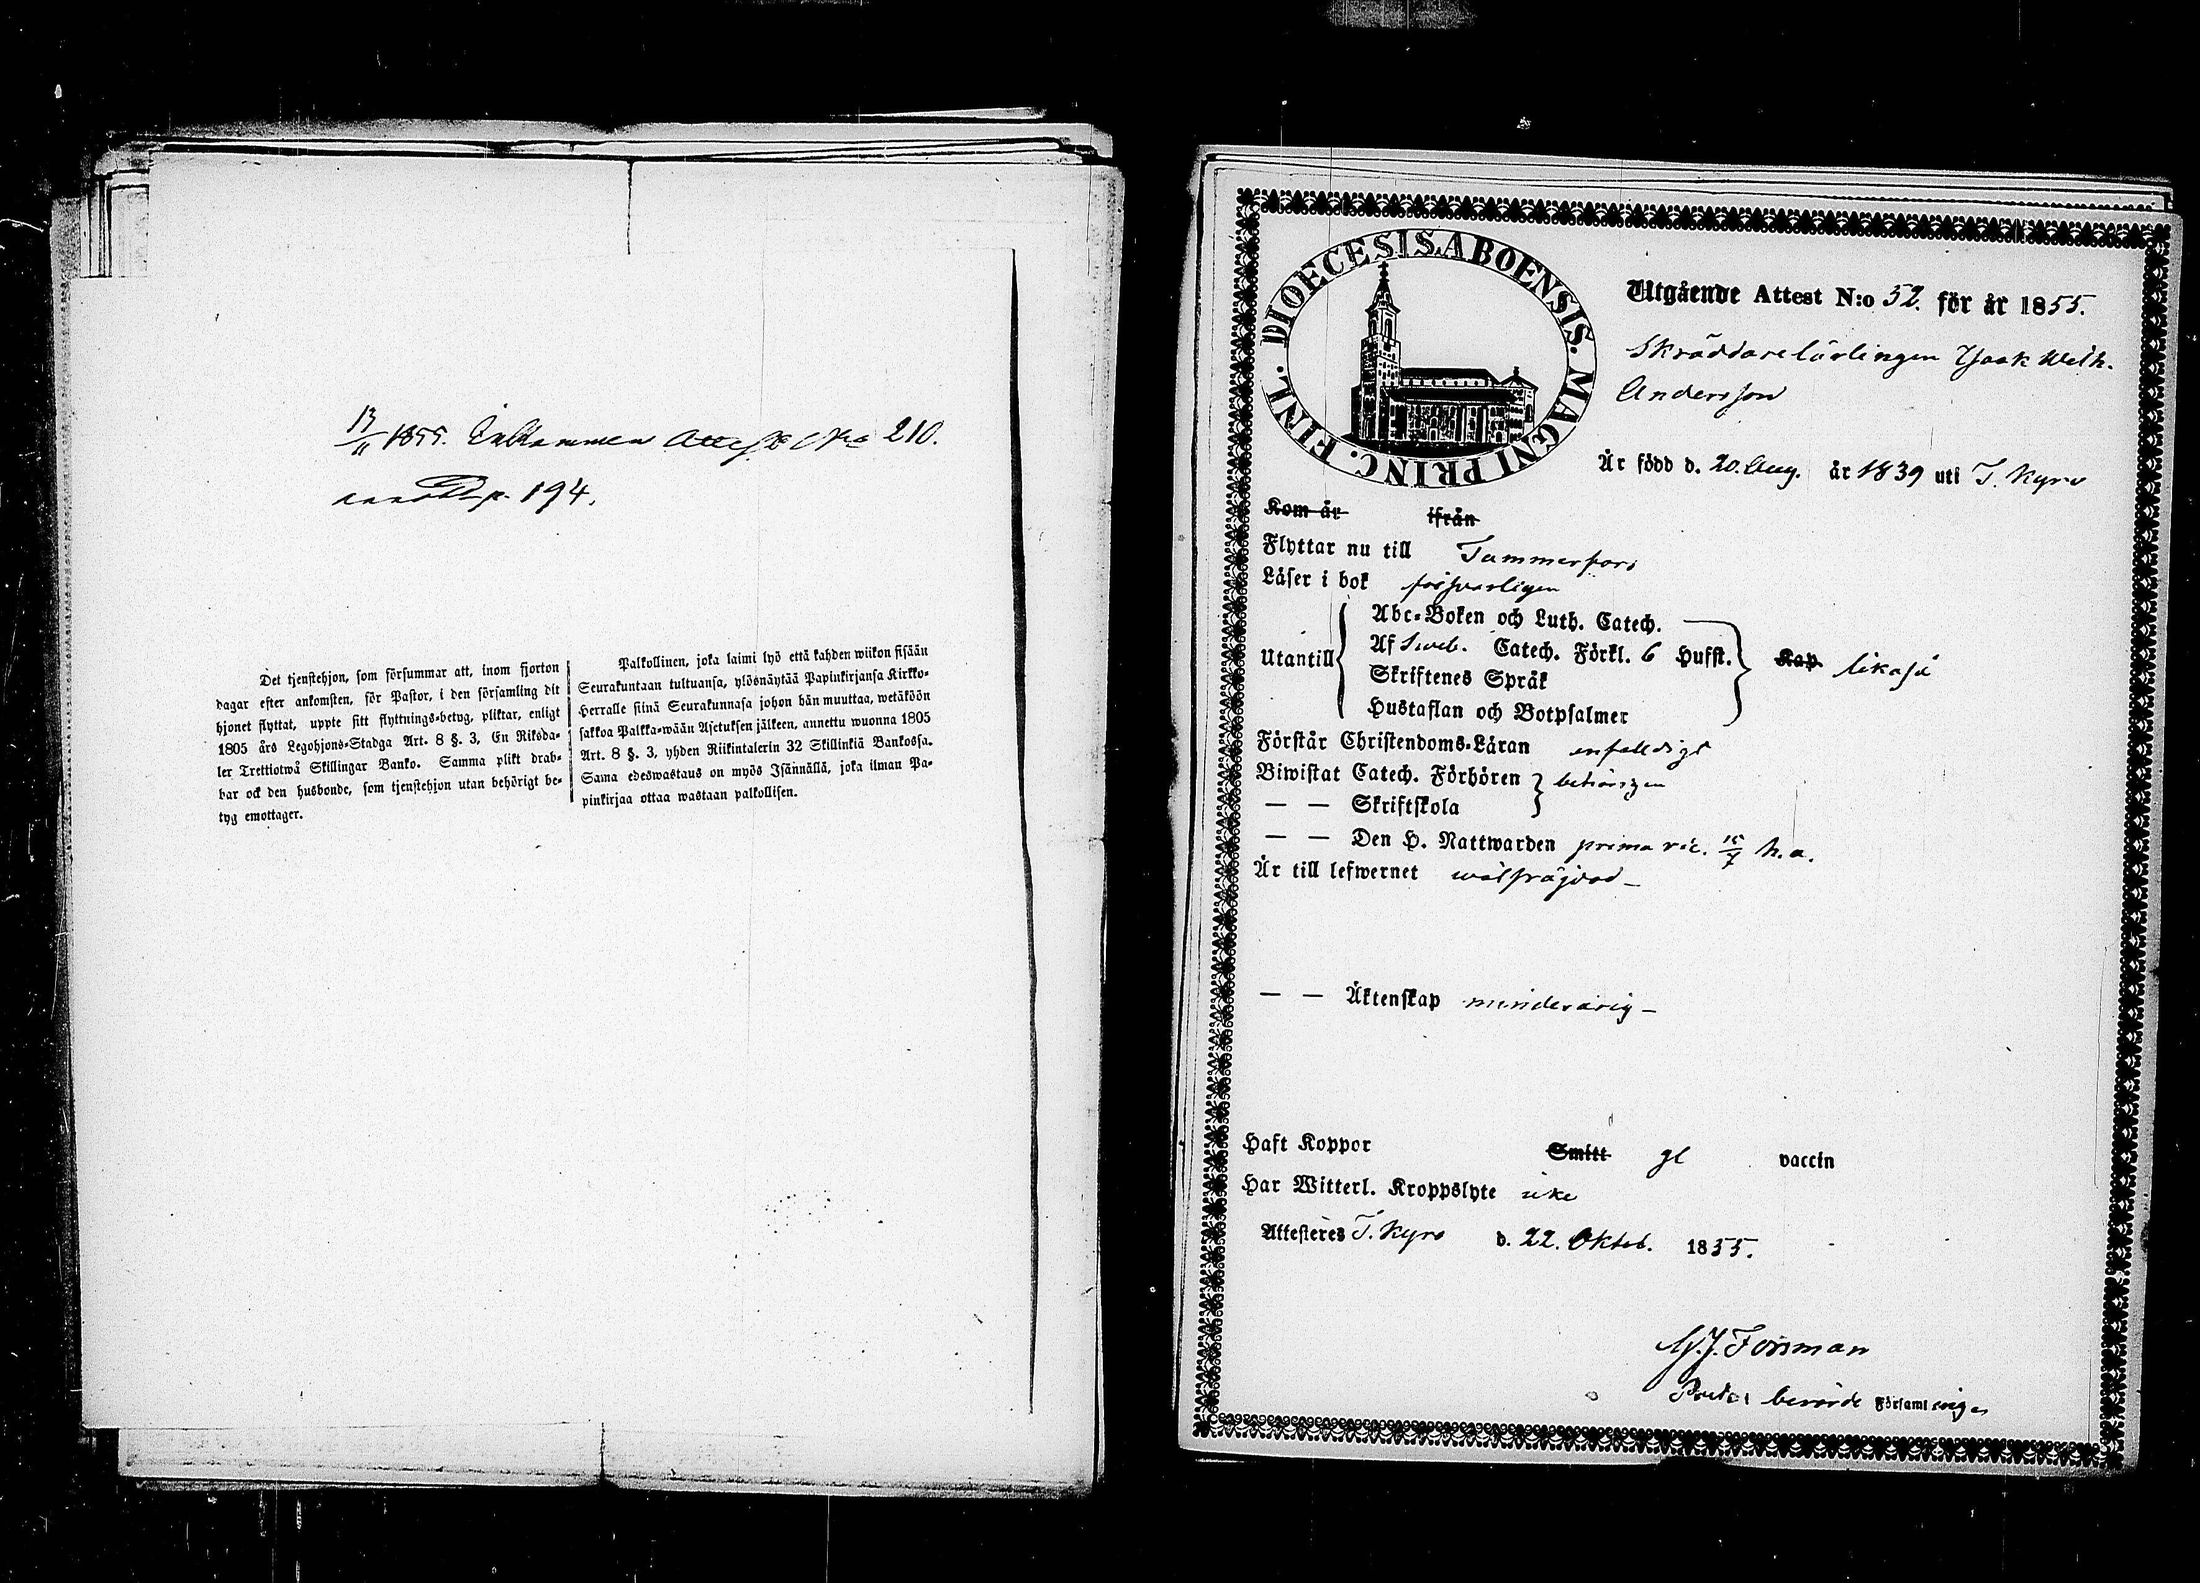 13/11 1855. Inkommen Attest No 210.
p. 194.
Det tjenstehjon, som försummar att, inom fjorton
dagar efter ankomsten, för Pastor, i den församling dit
hjonet flyttat, uppte sitt flyttnings-betyg, pliktar, enligt
1805 års Legohjons-Stadga Art. 8 §. 3, En Riksda-
ler Trettiotwå Skillingar Banko. Samma plikt drab-
bar ock den husbonde, som tjenstehjon utan behörigt be-
tyg emottager.
Palkollinen, joka laimi lyö että kahden wiikon sisään
Seurakuntaan tultuansa, ylösnäytää Papinkirjansa Kirkko-
Herralle siinä Seurakunnasa johon hän muuttaa, wetäköön
sakkoa Palkka-wään Asetuksen jälkeen, annettu wuonna 1805
Art. 8 §. 3, yhden Riikintalerin 32 Skillinkiä Bankossa.
Sama edeswastaus on myös Isännällä, joka ilman Pa-
pinkirjaa ottaa wastaan palkollisen.
DIOECESIS.ABOENSIS. MAGNI PRINC. FINL.
Utgående Attest N:o 52. för år 1855.
Skräddarelärlingen Isaak Welh.
Andersson
Är född d. 20. Aug. år 1839 uti T. Kyro
Kom år ifrån
Flyttar nu till Tammerfors
Läser i bok försvarligen
Utantill
Abc-Boken och Luth. Catech.
Af Sweb. Catech. Förkl. 6 Hufst.
Skriftenes Språk
Hustaflan och Botpsalmer
Kap likaså
Förstår Christendoms-Läran enfaldigt
Biwistat Catech. Förhören behörigen
— — Skriftskola
— — Den H. Nattwarden prima vic. 15/7 h. a.
Är till lefwernet wälfrägdad —
— — Äktenskap minderårig —
Haft Koppor Smitt gl vaccin
Har Witterl. Kroppslyte icke
Attesteres T. Kyro d. 22. Oktob. 1855.
Forsman
berörde Församlingen